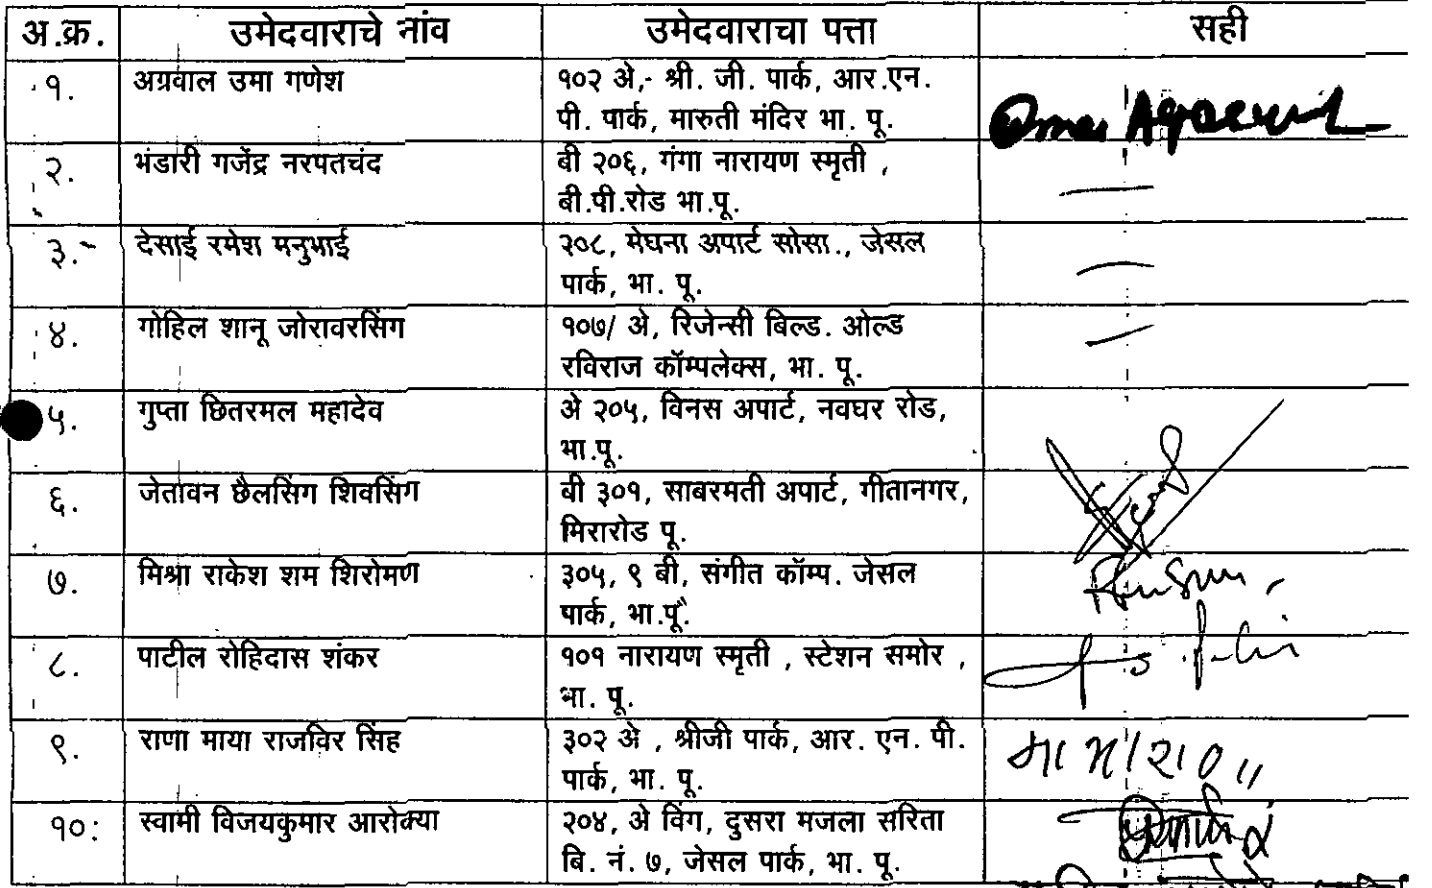 अ.क्र. उमेदवाराचे नांव उमेदवाराचा पत्ता सही
१. अग्रवाल उमा गणेश १०२ अे,- श्री. जी. पार्क, आर.एन.
पी. पार्क, मारुती मंदिर भा. पू. Uma Agrawal
२. भंडारी गजेंद्र नरपतचंद बी २०६, गंगा नारायण स्मृती ,
बी.पी.रोड भा.पू.
३. देसाई रमेश मनुभाई २०८, मेघना अपार्ट सोसा., जेसल
पार्क, भा. पू.
४. गोहिल शानू जोरावरसिंग १०७/ अे, रिजेन्सी बिल्ड. ओल्ड
रविराज कॉम्पलेक्स, भा. पू.
५. गुप्ता छितरमल महादेव अे २०५, विनस अपार्ट, नवघर रोड,
भा.पू.
६. जेतावन छैलसिंग शिवसिंग बी ३०१, साबरमती अपार्ट, गीतानगर,
मिरारोड पू.
७. मिश्रा राकेश शम शिरोमण ३०५, ९ बी, संगीत कॉम्प. जेसल
पार्क, भा.पू.
८. पाटील रोहिदास शंकर १०१ नारायण स्मृती , स्टेशन समोर ,
भा. पू.
९. राणा माया राजविर सिंह ३०२ अे , श्रीजी पार्क, आर. एन. पी.
पार्क, भा. पू.
१०: स्वामी विजयकुमार आरोक्या २०४, अे विंग, दुसरा मजला सरिता
बि. नं. ७, जेसल पार्क, भा. पू.